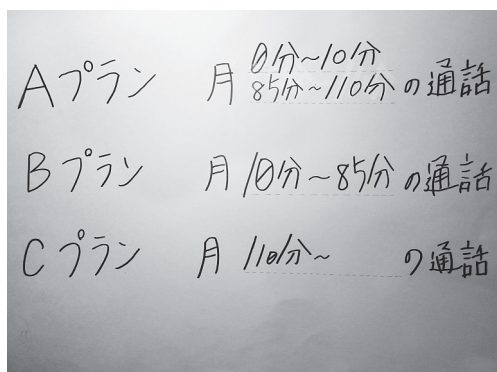 Aプラン 月 0分~10分 の通話
85分~110分
Bプラン 月 10分~85分 の通話
Cプラン 月 110分~ の通話